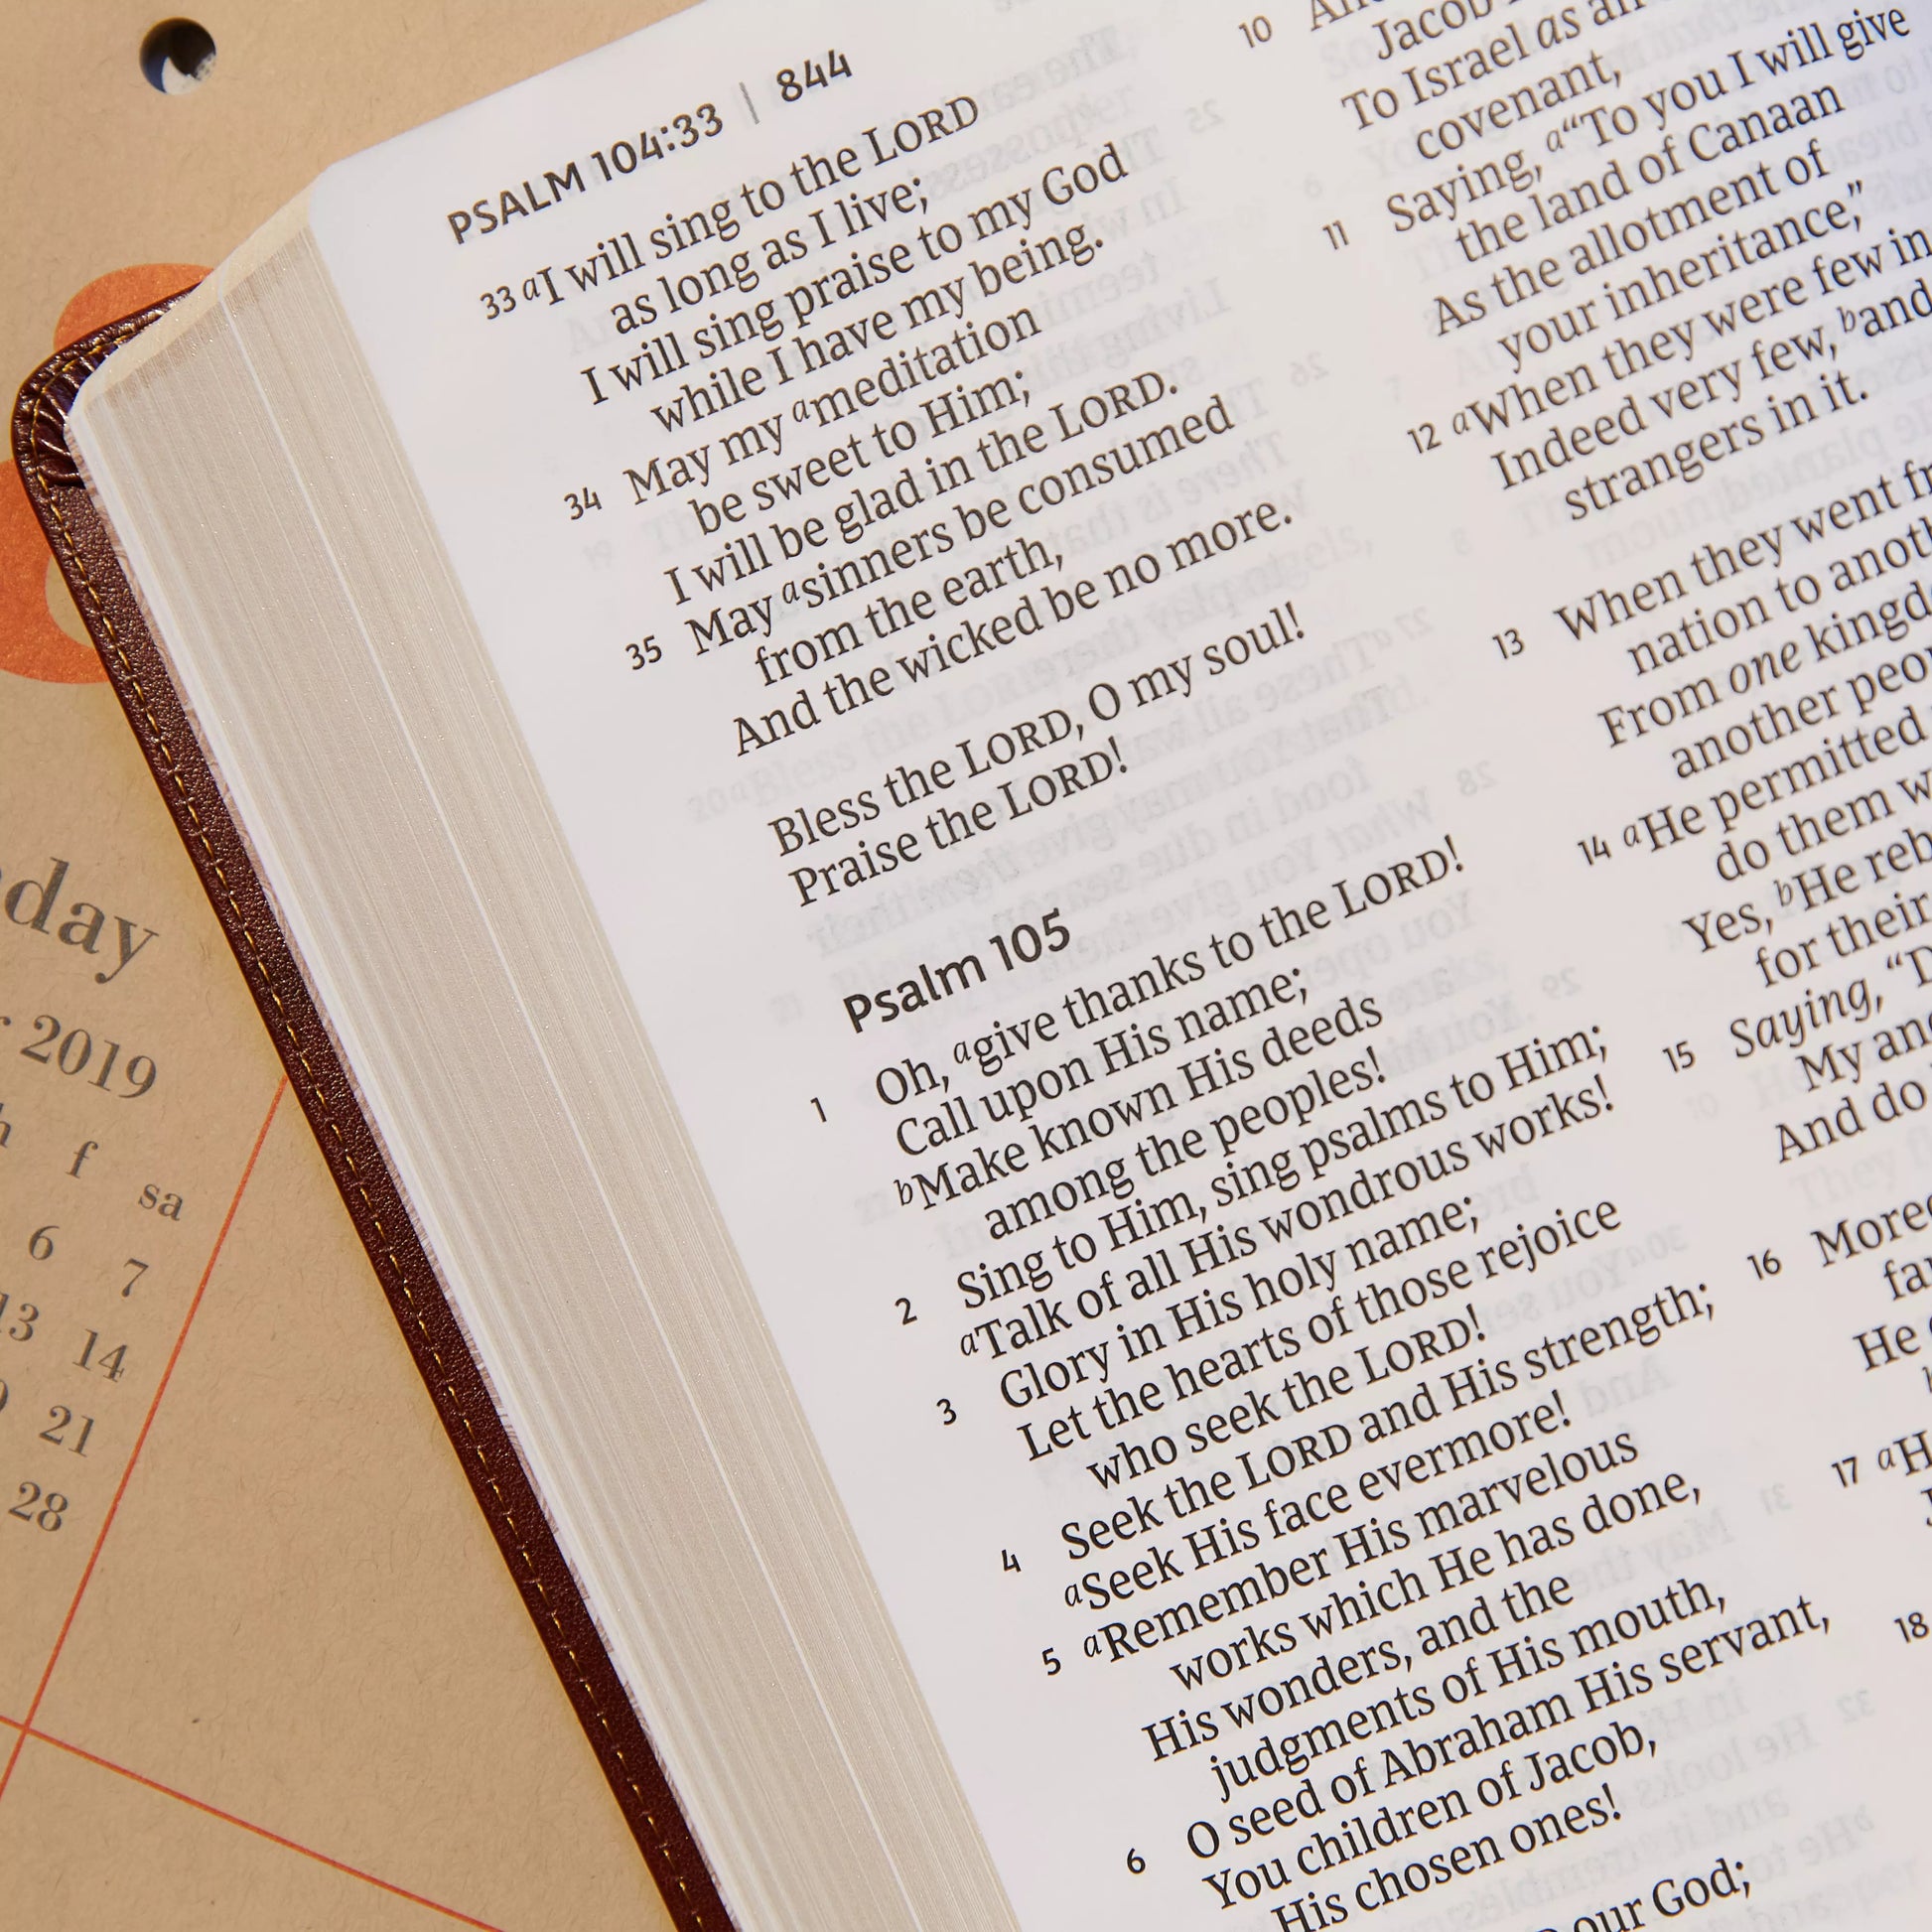 PSALM 104:33 | 844
33 aI will sing to the LORD
as long as I live;
I will sing praise to my God
while I have my being.
34 May my ameditation
be sweet to Him;
I will be glad in the LORD.
35 May asinners be consumed
from the earth,
And the wicked be no more.
Bless the LORD, O my soul!
Praise the LORD!
Psalm 105
1 Oh, agive thanks to the LORD!
Call upon His name;
bMake known His deeds
among the peoples!
2 Sing to Him, sing psalms to Him;
aTalk of all His wondrous works!
3 Glory in His holy name;
Let the hearts of those rejoice
who seek the LORD!
4 Seek the LORD and His strength;
aSeek His face evermore!
5 aRemember His marvelous
works which He has done,
His wonders, and the
judgments of His mouth,
6 O seed of Abraham His servant,
You children of Jacob,
His chosen ones!
our God;
10
Jacob
To Israel as an
covenant,
11 Saying, a“To you I will give
the land of Canaan
As the allotment of
your inheritance,”
12 aWhen they were few in
Indeed very few, band
strangers in it.
13 When they went
nation to
From one
another
14 aHe permitted
do them
Yes, bHe
for their
15 Saying,
My
And do
16
He
17
18
day
2019
f sa
6 7
13 14
21
28